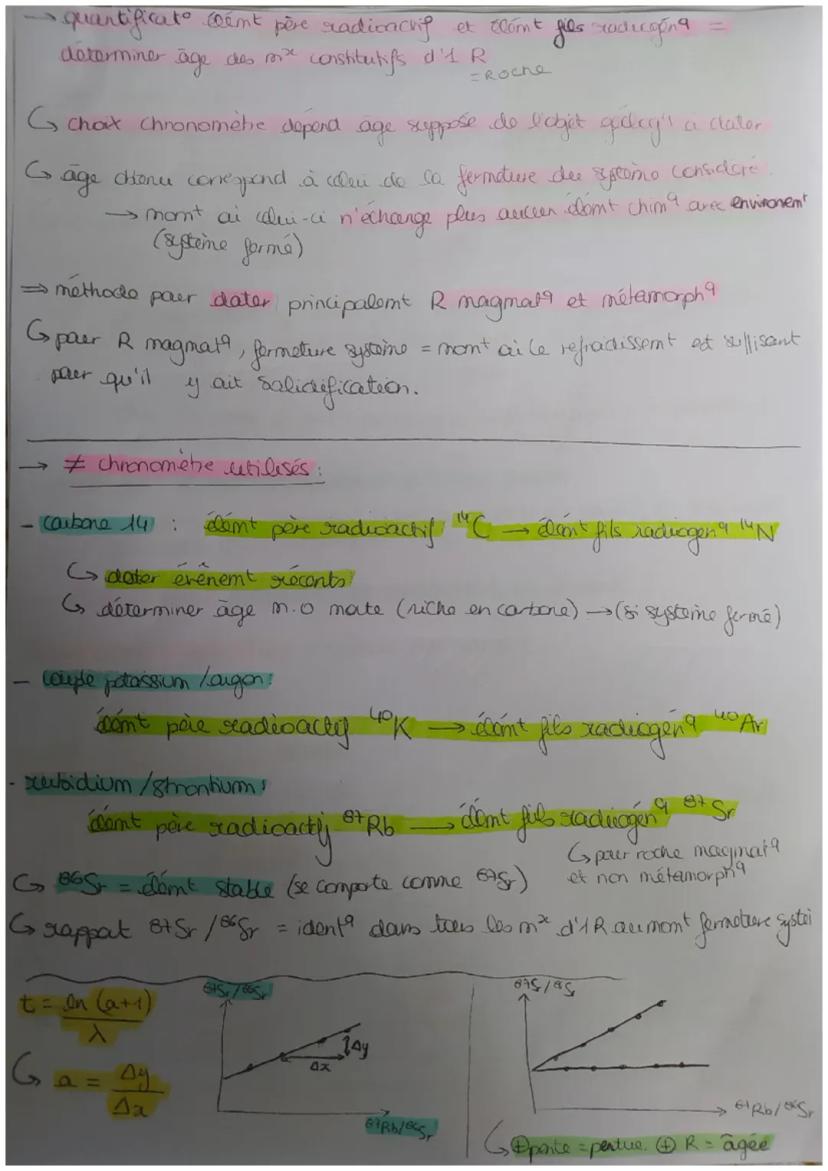 → quantificat° élémt père radioactif et élémt fils radiogén^q =
déterminer âge des m^x constitutifs d'1 R
= ROCHE
↳ choix chronomètre dépend âge supposé de l'objet géolog^q à dater
↳ âge obtenu correspond à celui de la fermeture du système considéré
→ momt où celui-ci n'échange plus aucun élémt chim^q avec environemt
(système fermé)
⇒ méthode pour dater principalemt R magmat^q et métamorph^q
↳ pour R magmat^q, fermeture système = momt où le refroidissemt est suffisant
pour qu'il y ait solidification.
→ ≠ chronomètre utilisés :
- carbone 14 : élémt père radioactif ¹⁴C → élémt fils radiogén^q ¹⁴N
↳ dater évênemt récents
↳ déterminer âge m.o morte (riche en carbone) → (si système fermé)
- couple potassium / argon :
élémt père radioactif ⁴⁰K → élémt fils radiogén^q ⁴⁰Ar
- rubidium / strontium :
élémt père radioactif ⁸⁷Rb → élémt fils radiogén^q ⁸⁷Sr
↳ pour roche magmat^q
et non métamorph^q
↳ ⁸⁶Sr = élémt stable (se comporte comme ⁸⁷Sr)
↳ rapport ⁸⁷Sr / ⁸⁶Sr = ident^q dans tous les m^x d'1 R au momt fermeture systè
t = ln (a+1) / λ
↳ a = Δy / Δx
⁸⁷Sr/⁸⁶Sr
Δy
Δx
⁸⁷Rb/⁸⁶Sr
⁸⁷Sr/⁸⁶Sr
⁸⁷Rb/⁸⁶Sr
↳ ⊕ pente = pentue, ⊕ R = âgée